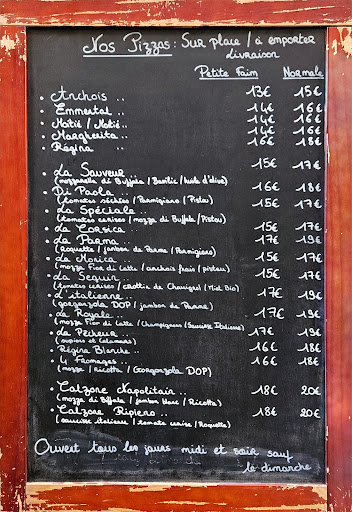 Nos Pizzas : Sur place / à emporter
livraison
Petite Faim Normale
• Anchois .. 13€ 15€
• Emmental .. 14€ 16€
• Moitié / Moitié.. 14€ 16€
• Margherita .. 14€ 16€
• Régina .. 16€ 18€
• La Sauveur 15€ 17€
(mozzarella di Buffala / Basilic / huile d'olive)
• Di Paola .. 16€ 18€
(tomates séchées / Parmigiano / Pistou)
• La Spéciale .. 15€ 17€
(tomates cerises / mozza di Buffala / Pistou)
• La Corsica 15€ 17€
• La Parma .. 17€ 19€
(roquette / jambon de Parme / Parmigiano)
• La Monica .. 15€ 17€
(mozza Fior di Latte / anchois frais / pistou)
• La Seguin .. 15€ 17€
(tomates cerises / crottin de Chavignol / Miel Bio)
• L'italienne .. 17€ 19€
(gorgonzola DOP / jambon de Parme)
• La Royale .. 17€ 19€
(mozza Fior di Latte / Champignons / Saucisse Italienne)
• La Pecheur .. 17€ 19€
(supions et Calamars)
• Régina Blanche .. 16€ 18€
• 4 Fromages .. 16€ 18€
(mozza / ricotta / Gorgonzola DOP)
• Calzone Napolitain .. 18€ 20€
(mozza di Buffala / jambon blanc / Ricotta)
• Calzone Ripieno .. 18€ 20€
(saucisse italienne / tomate cerise / Roquette)
Ouvert tous les jours midi et soir sauf
le dimanche